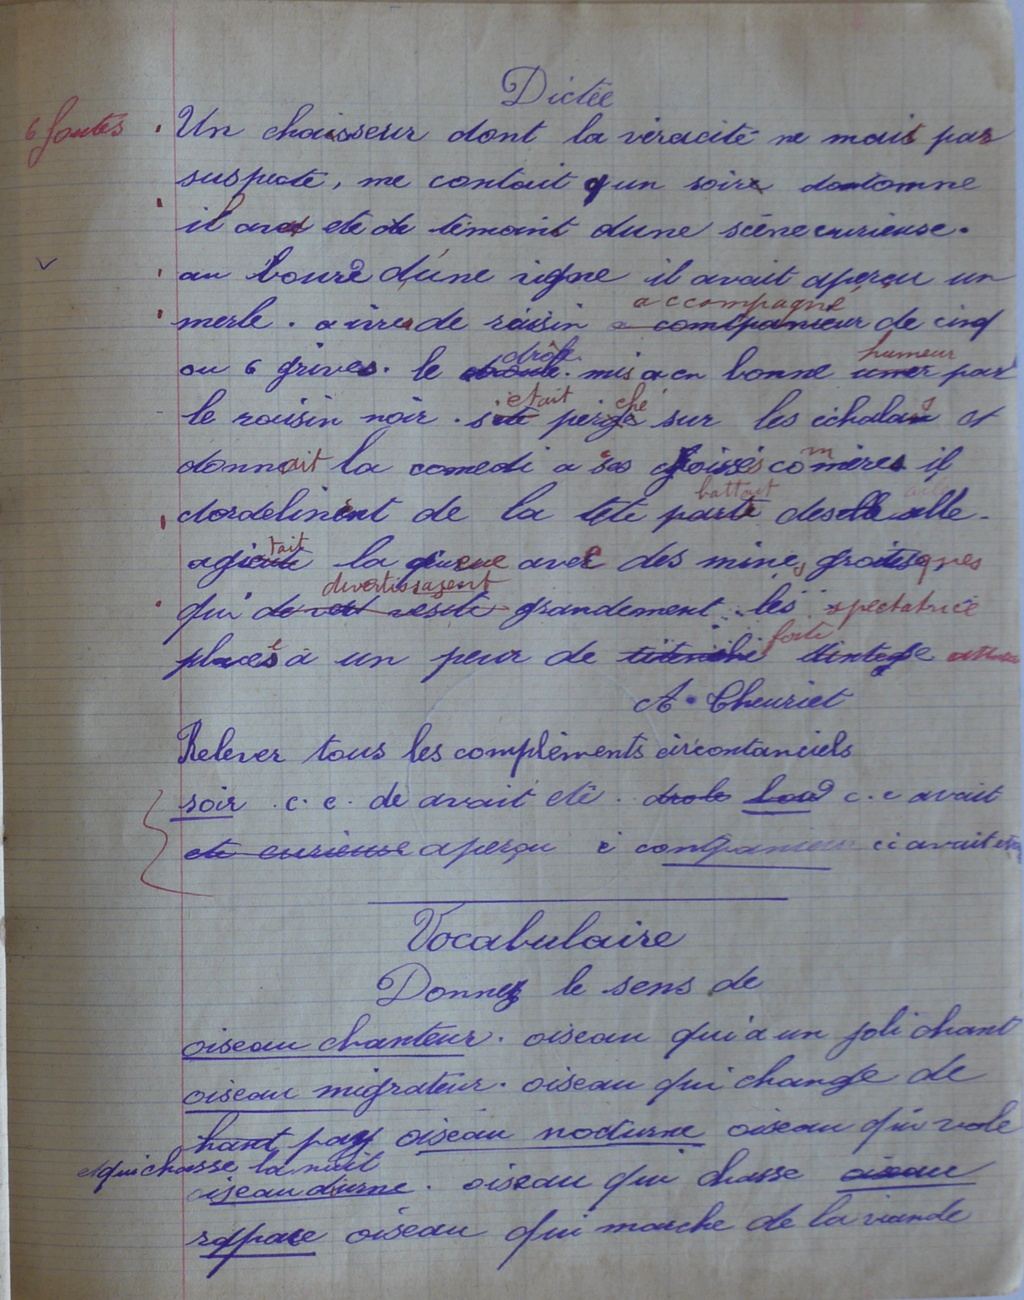 Dictée
6 fautes
Un chaisseur dont la véracité ne mait pas
suspecte, me contait qun soire dontomne
il avait ete de témoint dune scène curieuse.
au bourd d'une vigne il avait aperçu un
accompagné
merle. aivre de raisin de cinq
ou 6 grives. le drôle mis a en bonne humeur par
le raisin noir. était perché sur les échalas et
donnait la comedi a ses comères il
dordelinent de la tête battait des alle
agitait la queue avec des mines grotesques
divertissagent
qui grandement les spectatrice
places à un peur de forte
A. Cheuriet
Relever tous les compléments circontanciels
soir c. c. de avait eté. drole bourd c. c avait
ete curieuse aperçu c companieur c i avait
Vocabulaire
Donnez le sens de
oiseau chanteur. oiseau qui a un joli chant
oiseau migrateur. oiseau qui change de
hant pay oiseau nocturne oiseau qui vole
et qui chasse la nuit
oiseau diurne. oiseau qui chasse oiseau
rapace oiseau qui mauche de la viande